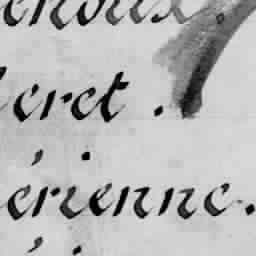 enoux.
eret.
érienne.